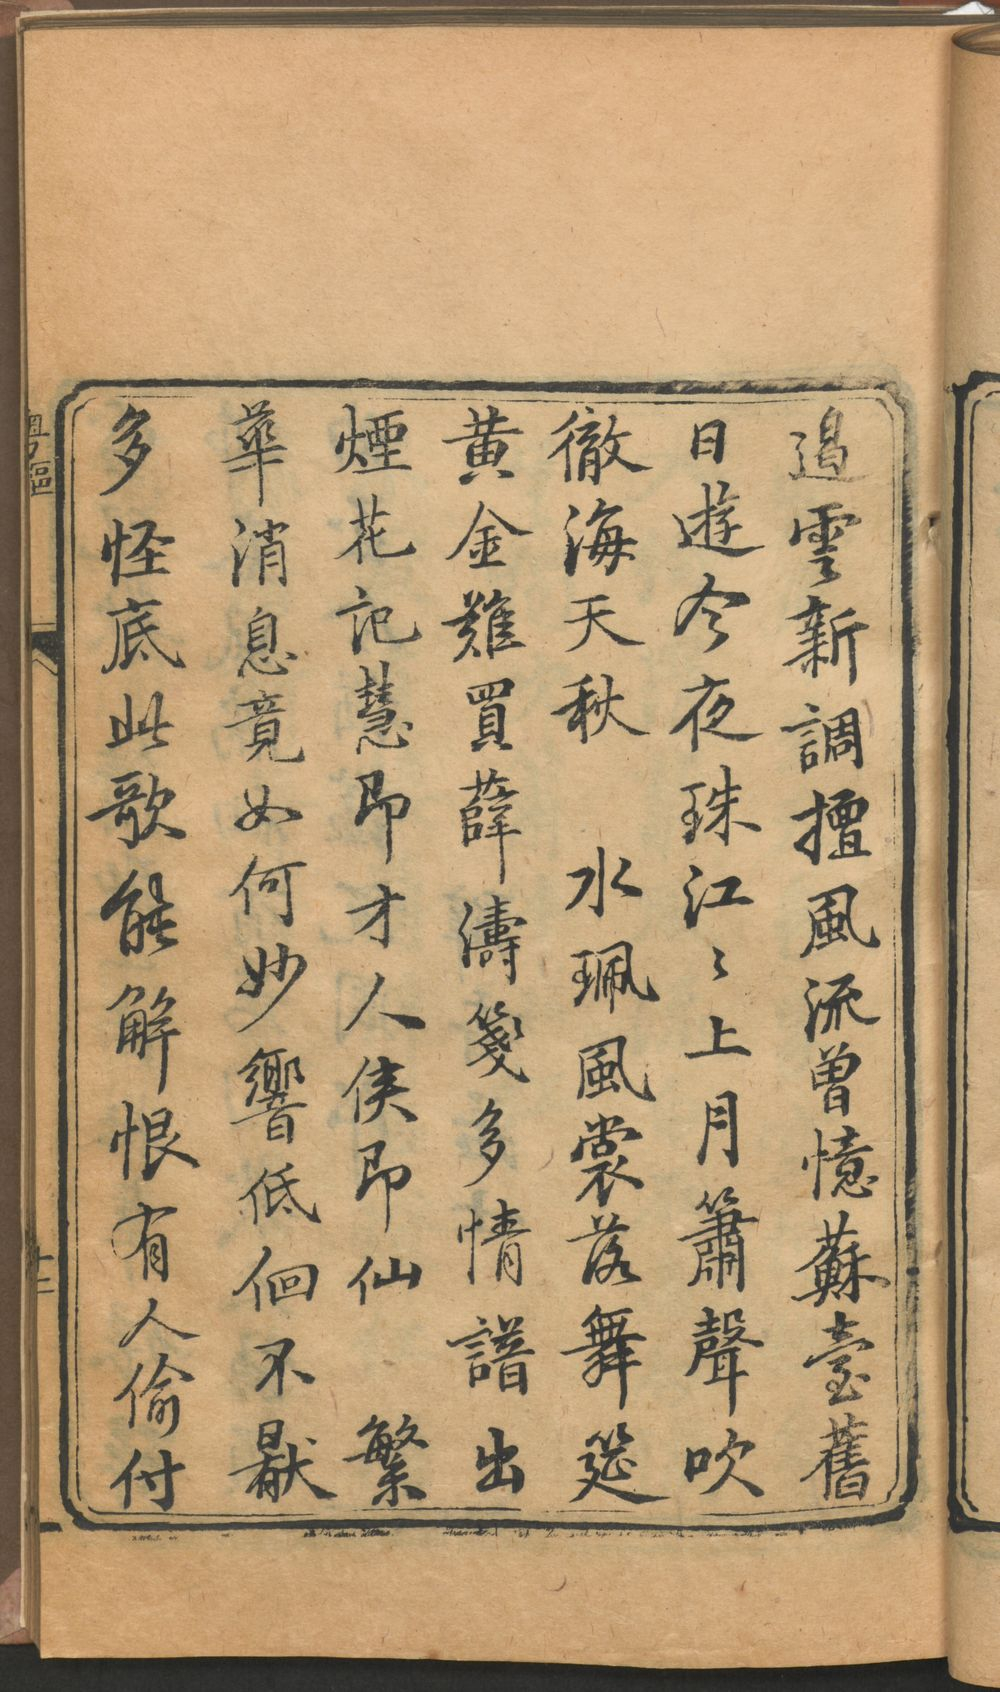 遏雲新調擅風流曾憶蘇臺舊
日遊今夜珠江〻上月簫聲吹
徹海天秋　水珮風裳落舞筵
黃金難買薛濤箋多情譜出
煙花記慧即才人俠即仙　繁
華消息竟如何妙響低佪不猒
多怪底此歌能解恨有人偷付
粵謳
十二